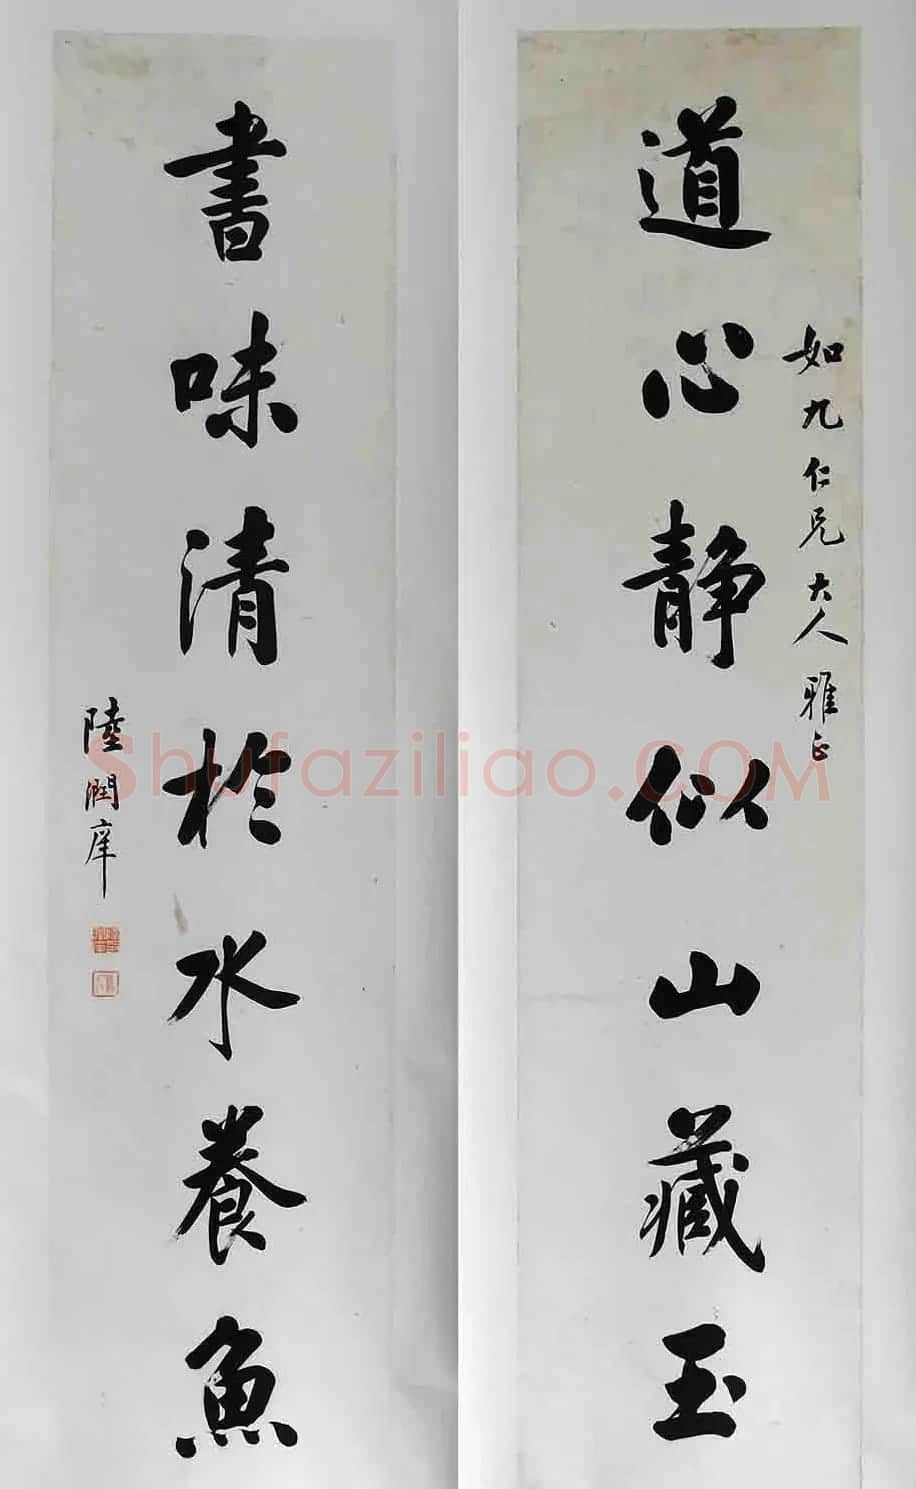 如九仁兄大人雅正
道心静似山藏玉
書味清於水養魚
陸潤庠
Shufaziliao.COM